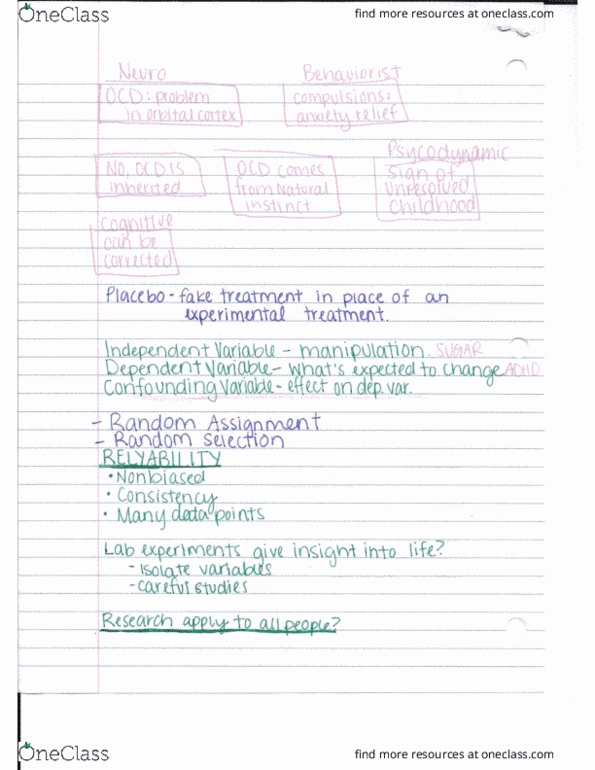 OneClass
find more resources at oneclass.com
Neuro
OCD: problem
in orbital cortex
Behaviorist
compulsions:
anxiety relief
No, OCD is
inherited
OCD comes
from Natural
instinct
Psycodynamic
Sign of
unresolved
childhood
Cognitive
can be
corrected
Placebo - fake treatment in place of an
experimental treatment.
Independent Variable - manipulation. SUGAR
Dependent Variable - What's expected to change ADHD
Confounding Variable - effect on dep. var.
- Random Assignment
- Random Selection
RELYABILITY
• Nonbiased
• Consistency
• Many data points
Lab experiments give insight into life?
- Isolate variables
- careful studies
Research apply to all people?
OneClass
find more resources at oneclass.com